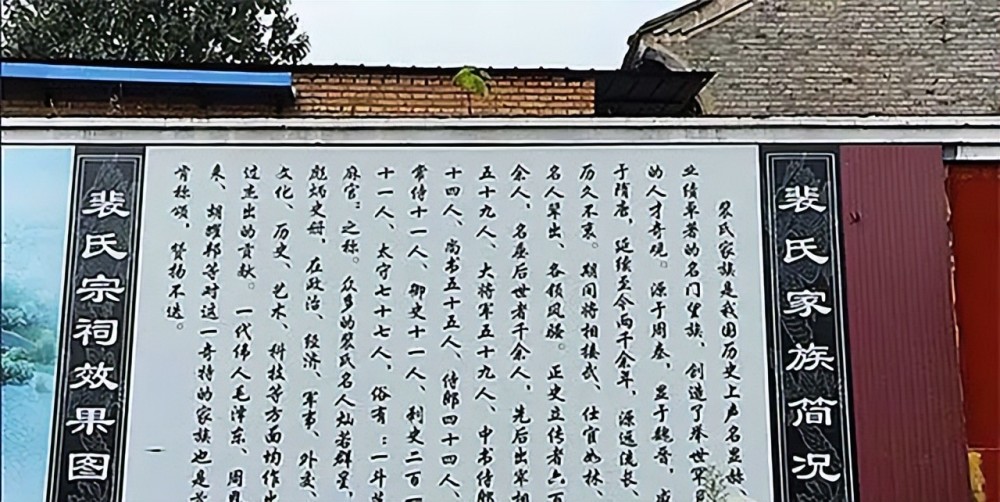 裴氏家族简况
裴氏家族是我国历史上声名显赫
业绩卓著的名门望族，创造了举世罕
的人才奇观。源于周秦，显于魏晋，盛
于隋唐，延续至今两千余年，源远流长、
历久不衰。期间将相接武、仕宦如林、
名人辈出、各领风骚。正史立传者六百
余人，名垂后世者千余人，先后出宰相
五十九人、大将军五十九人、中书侍郎
十四人、尚书五十五人、侍郎四十四人、
常侍十一人、御史十一人、刺史二百一
十一人、太守七十七人，俗有：一斗芝
麻官：之称。众多的裴氏名人灿若群星，
彪炳史册，在政治、经济、军事、外交、
文化、历史、艺术、科技等方面均作出
过杰出的贡献。一代伟人毛泽东、周恩
来、胡耀邦等对这一奇特的家族也是首
肯称颂，赞扬不迭。
裴氏宗祠效果图